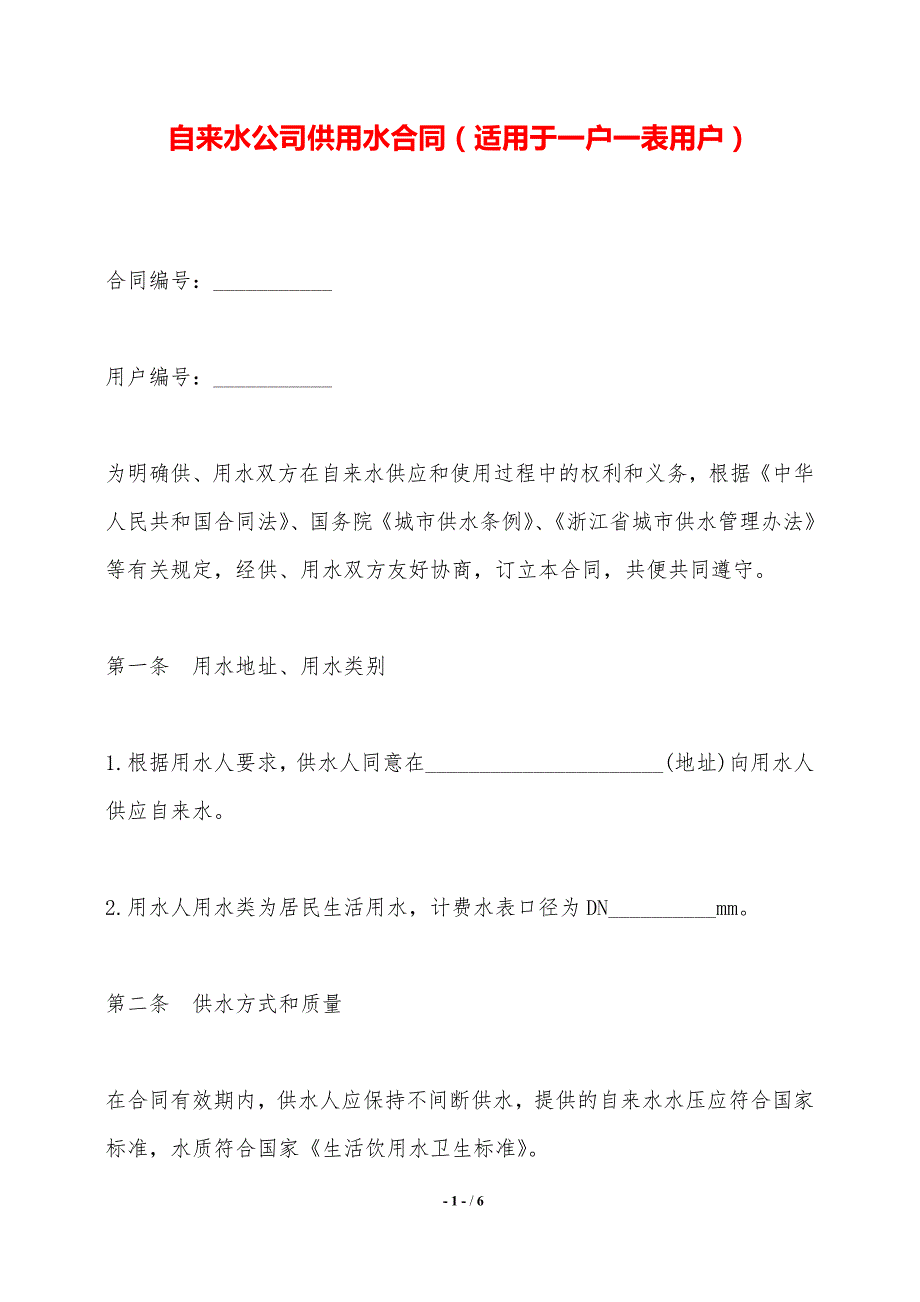 自来水公司供用水合同（适用于一户一表用户）
合同编号：___________
用户编号：___________
为明确供、用水双方在自来水供应和使用过程中的权利和义务，根据《中华
人民共和国合同法》、国务院《城市供水条例》、《浙江省城市供水管理办法》
等有关规定，经供、用水双方友好协商，订立本合同，共便共同遵守。
第一条　用水地址、用水类别
1.根据用水人要求，供水人同意在______________________(地址)向用水人
供应自来水。
2.用水人用水类为居民生活用水，计费水表口径为DN__________mm。
第二条　供水方式和质量
在合同有效期内，供水人应保持不间断供水，提供的自来水水压应符合国家
标准，水质符合国家《生活饮用水卫生标准》。
- 1 - / 6